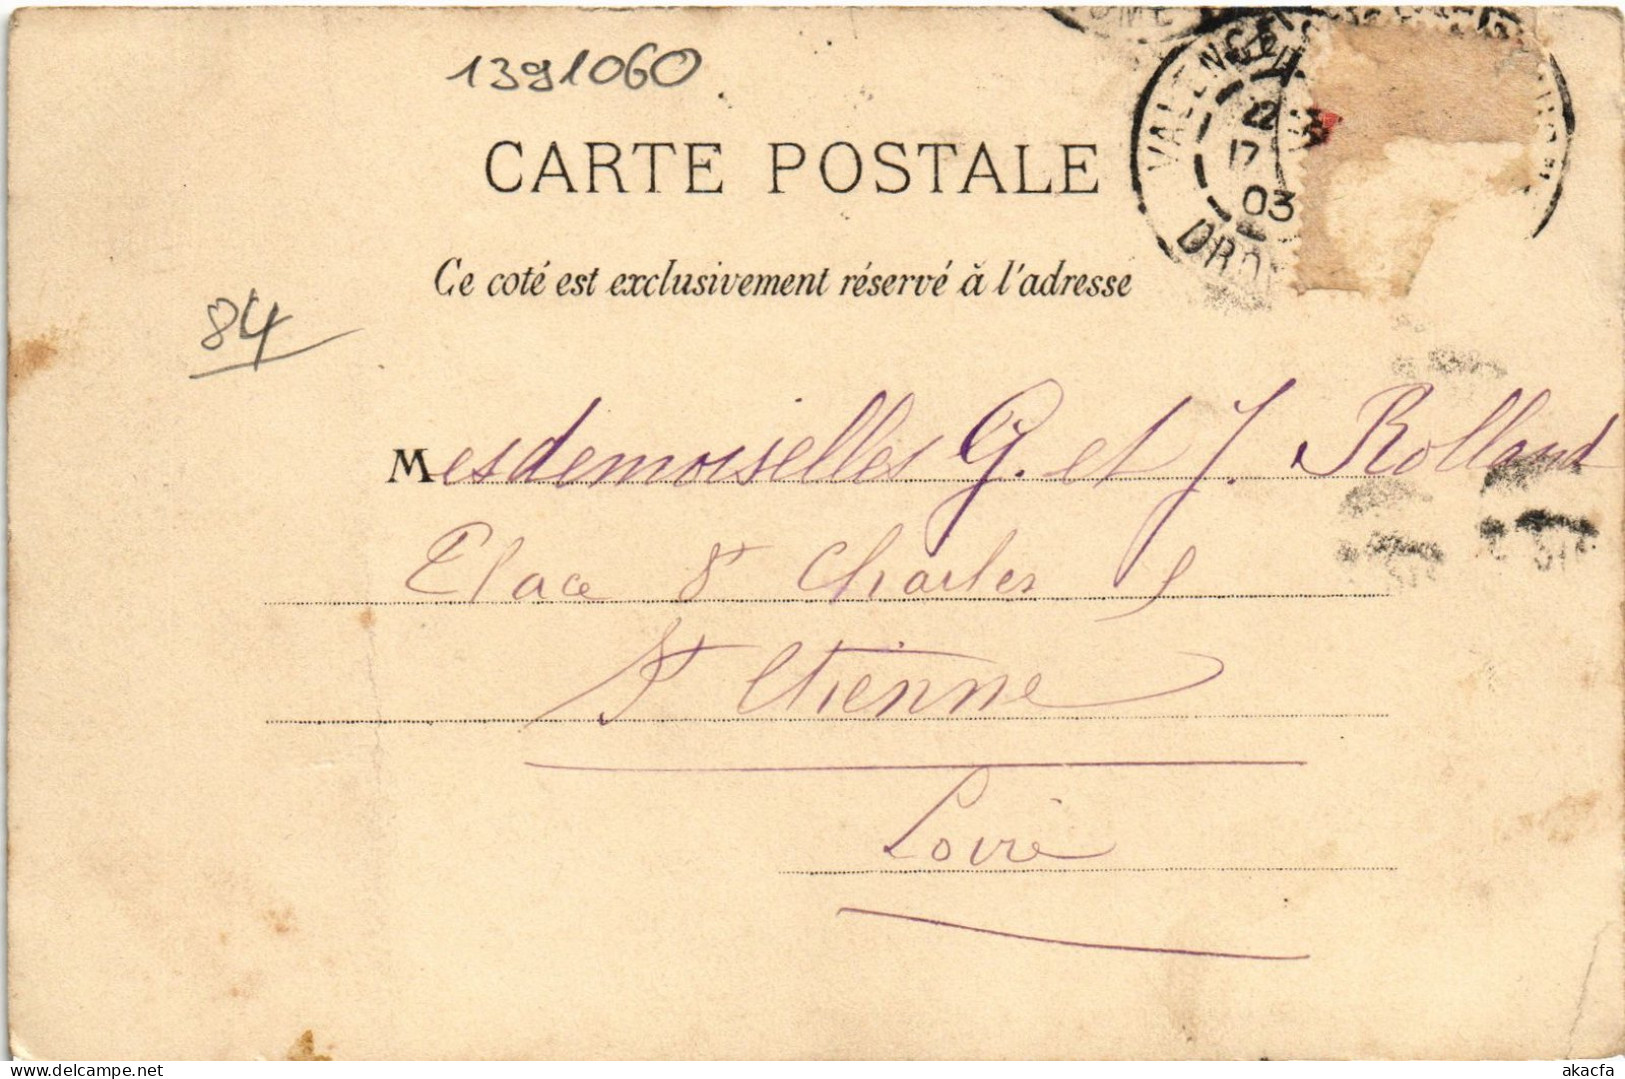 1391060
VALENCE
22
17
03
DRO
CARTE POSTALE
Ce coté est exclusivement réservé à l'adresse
84
Mesdemoiselles G. et J. Rolland
Place St Charles 9
St Etienne
Loire
akacfa